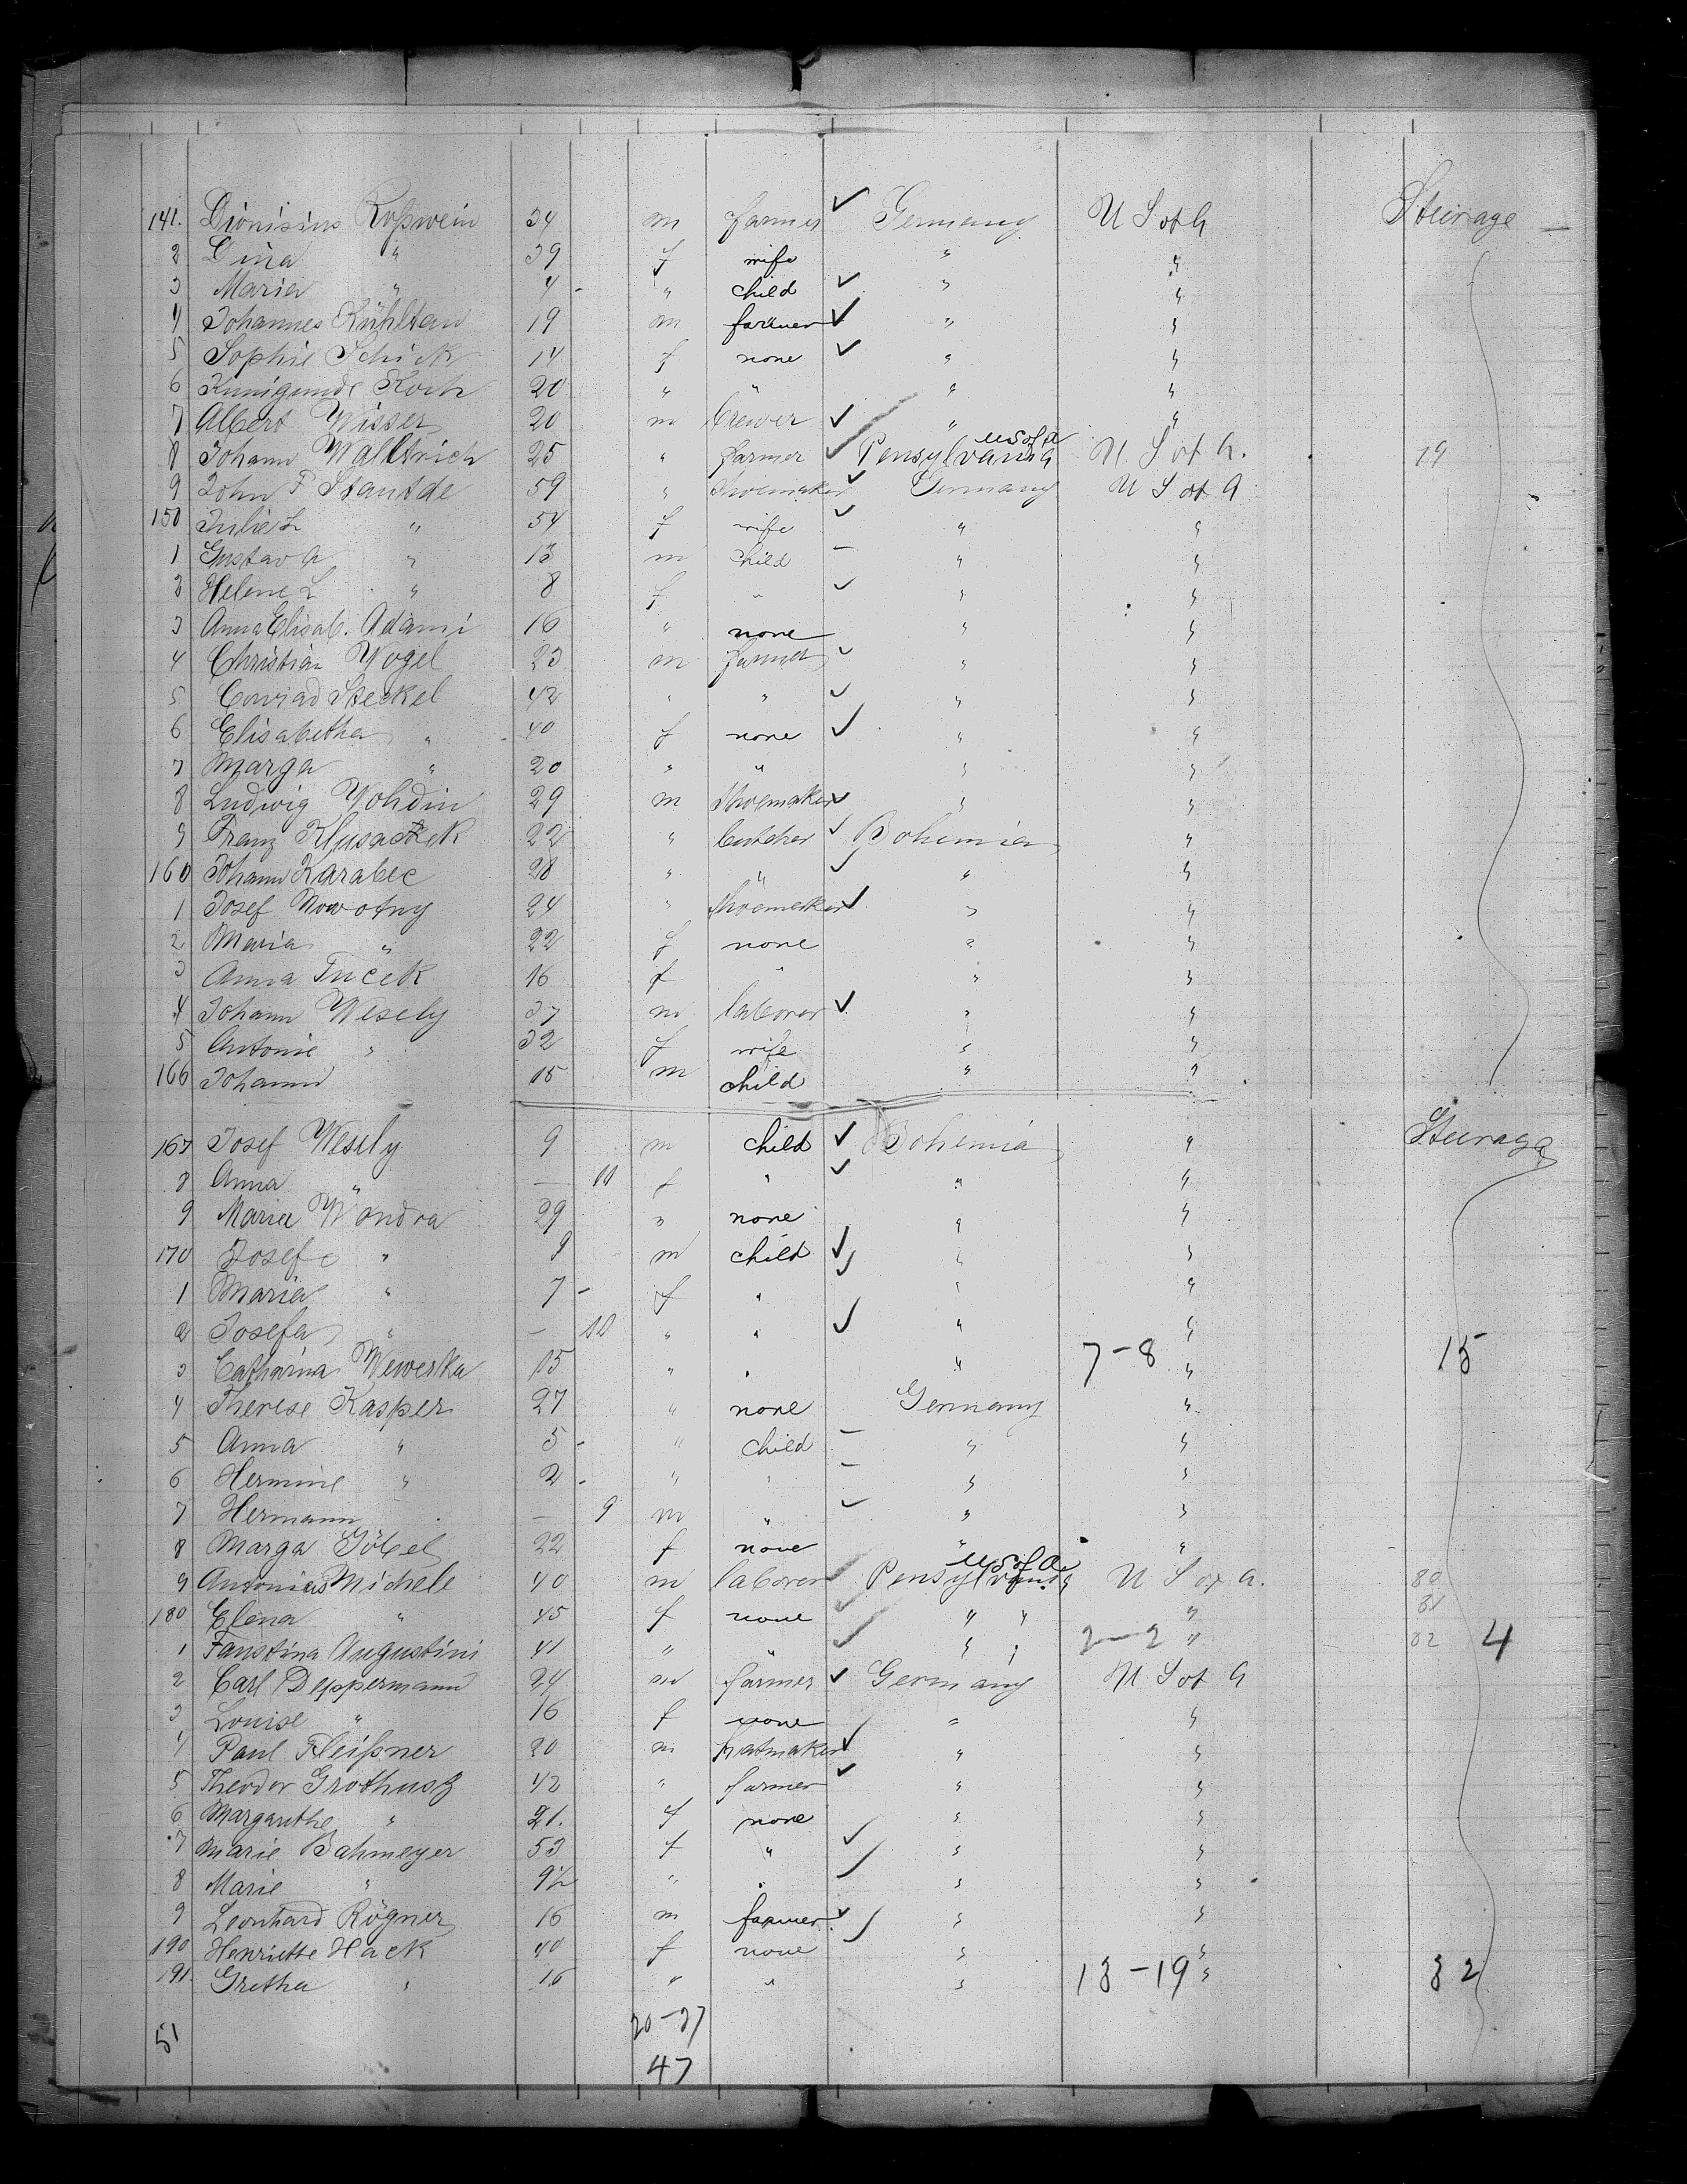 141. Dionisius Roßwein 34 m farmer ✓ Germany U S of A Steirage
2 Dina " 39 f wife " "
3 Maria " 4 - " child ✓ " "
4 Johannes Kühltau 19 m farmer ✓ " "
5 Sophie Schick 14 f none ✓ " "
6 Kunigunde Koch 20 " " " "
7 Albert Wisser 20 m brewer ✓ " "
8 Johann Walltrich 25 " farmer ✓ Pensylvania U S of A U S of A. 79
9 John F Staudde 59 " Shoemaker ✓ Germany U S of A
150 Julie L " 54 f wife ✓ " "
1 Gustav A " 13 m child — " "
2 Helene L " 8 f " ✓ " "
3 Anna Elisab. Adami 16 " none " "
4 Christian Vogel 23 m farmer ✓ " "
5 Conrad Steckel 42 " " ✓ " "
6 Elisabetha " 40 f none ✓ " "
7 Marga " 20 " " " "
8 Ludwig Nohdin 29 m Shoemaker ✓ " "
9 Franz Klusaczek 22 " butcher ✓ Bohemia "
160 Johann Karabec 28 " " ✓ " "
1 Josef Nowotny 24 " Shoemaker ✓ " "
2 Maria " 22 f none " "
3 Anna Tucek 16 f " " "
4 Johann Wesely 37 m laborer ✓ " "
5 Antonie " 32 f wife " "
166 Johann 15 m child " "
167 Josef Wesely 9 m child ✓ Bohemia " Steerage
8 Anna " — 11 f " ✓ " "
9 Maria Wondra 29 " none " "
170 Josef " 9 m child ✓ " "
1 Maria " 7 - f " ✓ " "
2 Josefa " — 10 " " ✓ " "
3 Catharina Wewerka 15 " " " 7-8 " 15
4 Therese Kasper 27 " none Germany "
5 Anna " 5 - " child — " "
6 Hermine " 2 - " " — " "
7 Hermann — 9 m " ✓ " "
8 Marga Göbel 22 f none " "
9 Antonio Michele 40 m laborer ✓ Pensylvania U S of A U S of A. 80
180 Elena " 45 f none ✓ " " " 81
1 Faustina Augustini 41 " " ✓ " " 2-2 " 82 4
2 Carl Deppermann 24 m farmer ✓ Germany U S of A
3 Louise " 16 f none " "
4 Paul Fleißner 20 m hatmaker ✓ " "
5 Theodor Grothusz 42 " farmer ✓ " "
6 Margarethe " 21. f none " "
7 Marie Bahmeyer 53 f " ✓ " "
8 Marie " 9½ " " ✓ " "
9 Leonhard Rögner 16 m farmer ✓ " "
190 Henriette Hack 40 f none " "
191. Gretha " 16 " " " 13-19 " 32
51 20-27
47